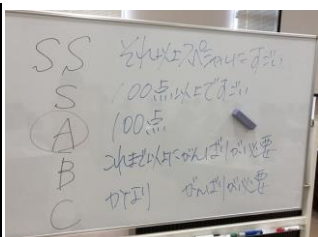 SS それ以上スペシャルにすごい
S 100点以上ですごい
A 100点
B これまで以上にがんばりが必要
C かなり がんばりが必要